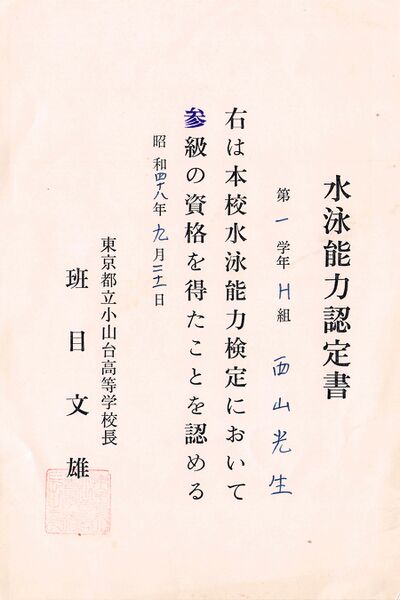 水泳能力認定書
第一学年H組 西山光生
右は本校水泳能力検定において
参級の資格を得たことを認める
昭和四十八年九月二十一日
東京都立小山台高等学校長
班目文雄